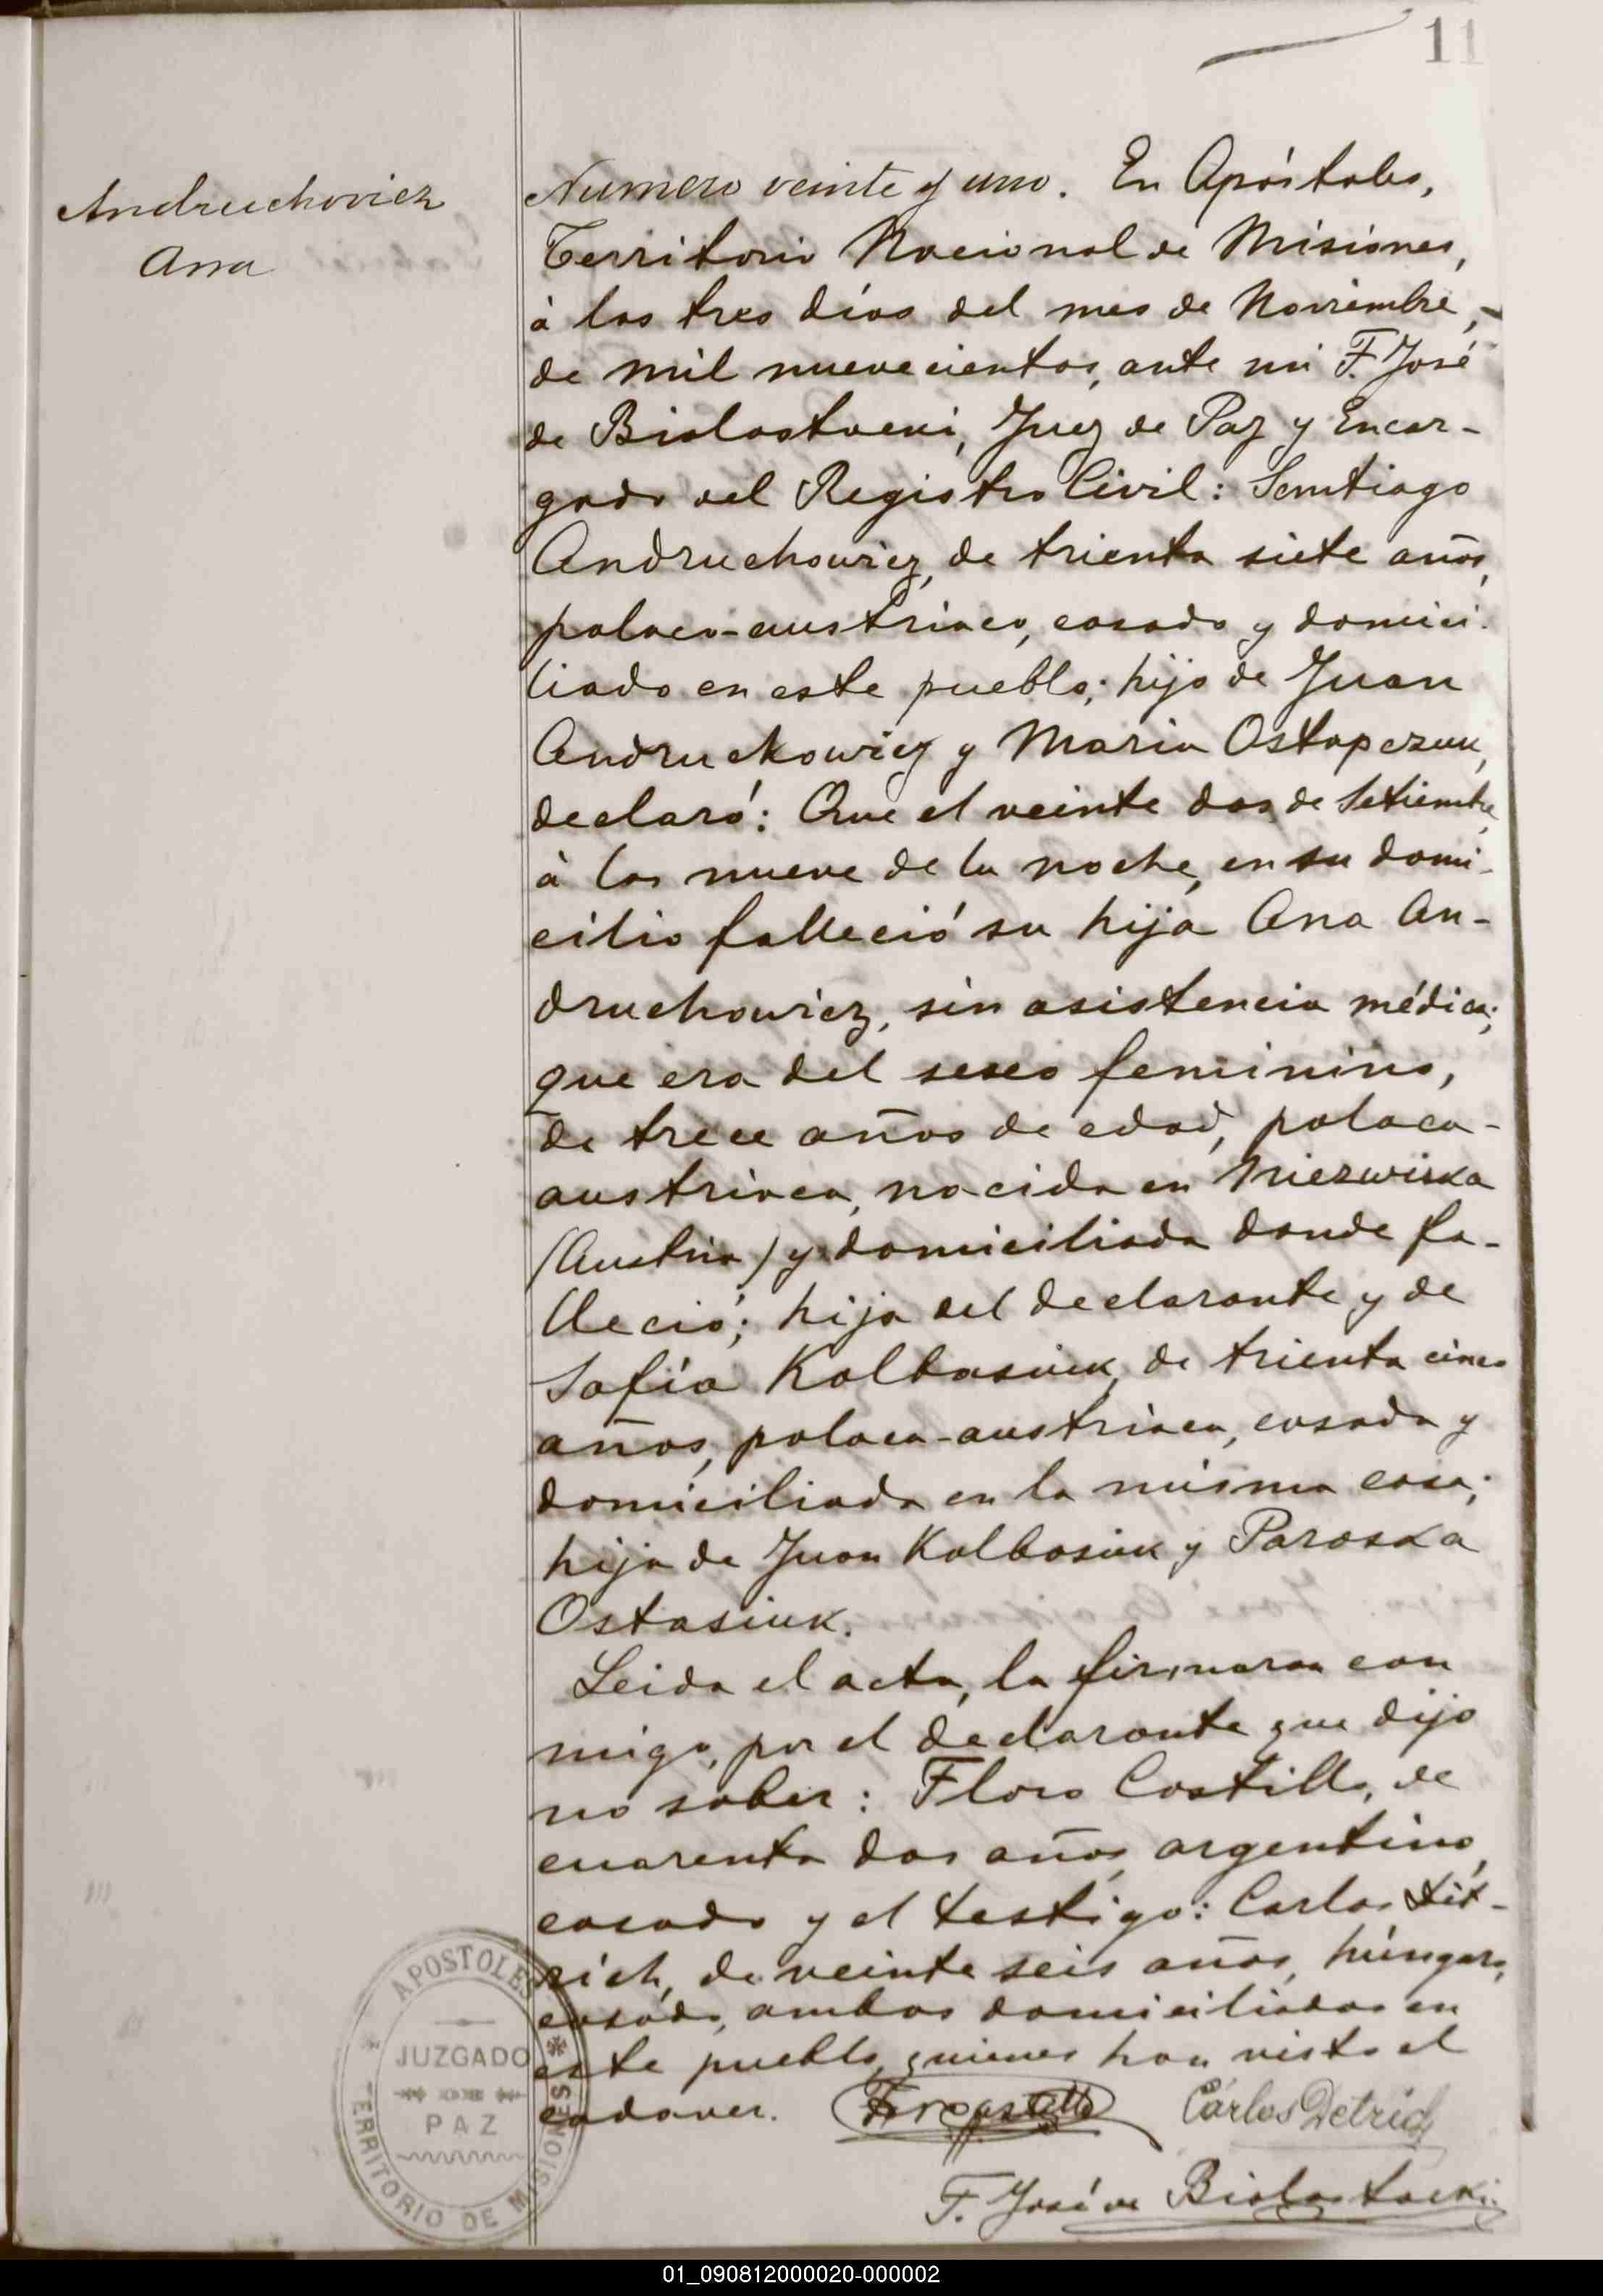 11
Andruchovicz
Ana
Numero veinte y uno. En Apóstoles,
Territorio Nacional de Misiones,
à los tres días del mes de Noviembre,
de mil nuevecientos, ante mi F. José
de Bialostocki, Juez de Paz y Encar-
gado del Registro Civil: Santiago
Andruchowicz, de trienta siete años,
polaco-austriaco, casado y domici-
liado en este pueblo; hijo de Juan
Andruchowicz y Maria Ostapczuk,
declaró: Que el veinte dos de Setiembre,
à las nueve de la noche, en su domi-
cilio falleció su hija Ana An-
druchowicz, sin asistencia médica;
que era del sexso feminino,
de trece años de edad, polaca-
austriaca, nacida en Niezwiska
(Austria) y domiciliada donde fa-
lleció; hija del declarante y de
Sofía Kolbasiuk, de trienta cinco
años, polaca-austriaca, casada y
domiciliada en la misma casa;
hija de Juan Kolbasiuk y Paraska
Ostasiuk.
Leida el acta, la firmaron con
migo, por el declarante que dijo
no saber: Floro Costillo, de
cuarenta dos años, argentino,
casado y el testigo: Carlos Dit-
rich, de veinte seis años, húngaro,
casado, ambos domiciliados en
este pueblo, quienes han visto el
cadaver. Carlos Detrich
F. José de Bialostocki
APOSTOLES
JUZGADO
PAZ
TERRITORIO DE MISIONES
01_090812000020-000002